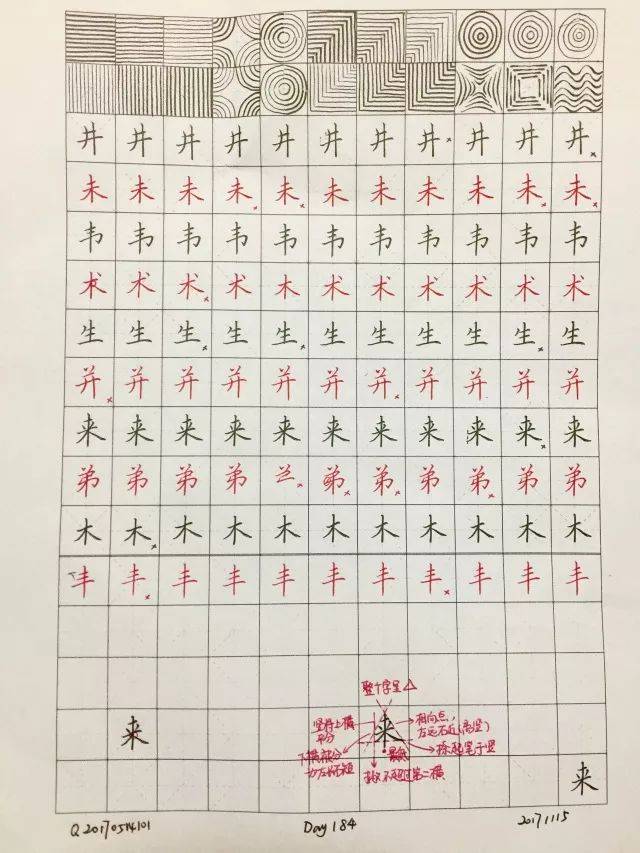 井 井 井 井 井 井 井 井 井 井 井
未 未 未 未 未 未 未 未 未 未 未
韦 韦 韦 韦 韦 韦 韦 韦 韦 韦 韦
术 术 术 术 术 术 术 术 术 术 术
生 生 生 生 生 生 生 生 生 生 生
并 并 并 并 并 并 并 并 并 并 并
来 来 来 来 来 来 来 来 来 来 来
弟 弟 弟 弟 弟 弟 弟 弟 弟 弟
木 木 木 木 木 木 木 木 木 木 木
丰 丰 丰 丰 丰 丰 丰 丰 丰 丰 丰
整个字呈△
竖将上横
平分
相向点,
左远右近(离竖)
来
来
下横被分
为左长右短
最低
捺起笔于竖
不超过第二横
来
Q20170514101
Day 184
20171115